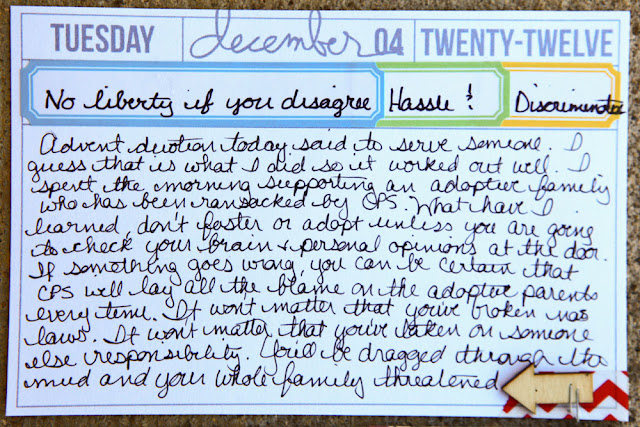 TUESDAY december 04 TWENTY-TWELVE
No liberty if you disagree Hassle & Discriminates
Advent devotion today said to serve someone. I
guess that is what I did so it worked out well. I
spent the morning supporting an adoptive family
who has been ransacked by CPS. What have I
learned, don't foster or adopt unless you are going
to check your brain & personal opinions at the door.
If something goes wrong you can be certain that
CPS will lay all the blame on the adoptive parents
every time. It won't matter that you've broken no
laws. It won't matter that you've taken on someone
else responsibility. You'll be dragged through the
mud and your whole family threatened